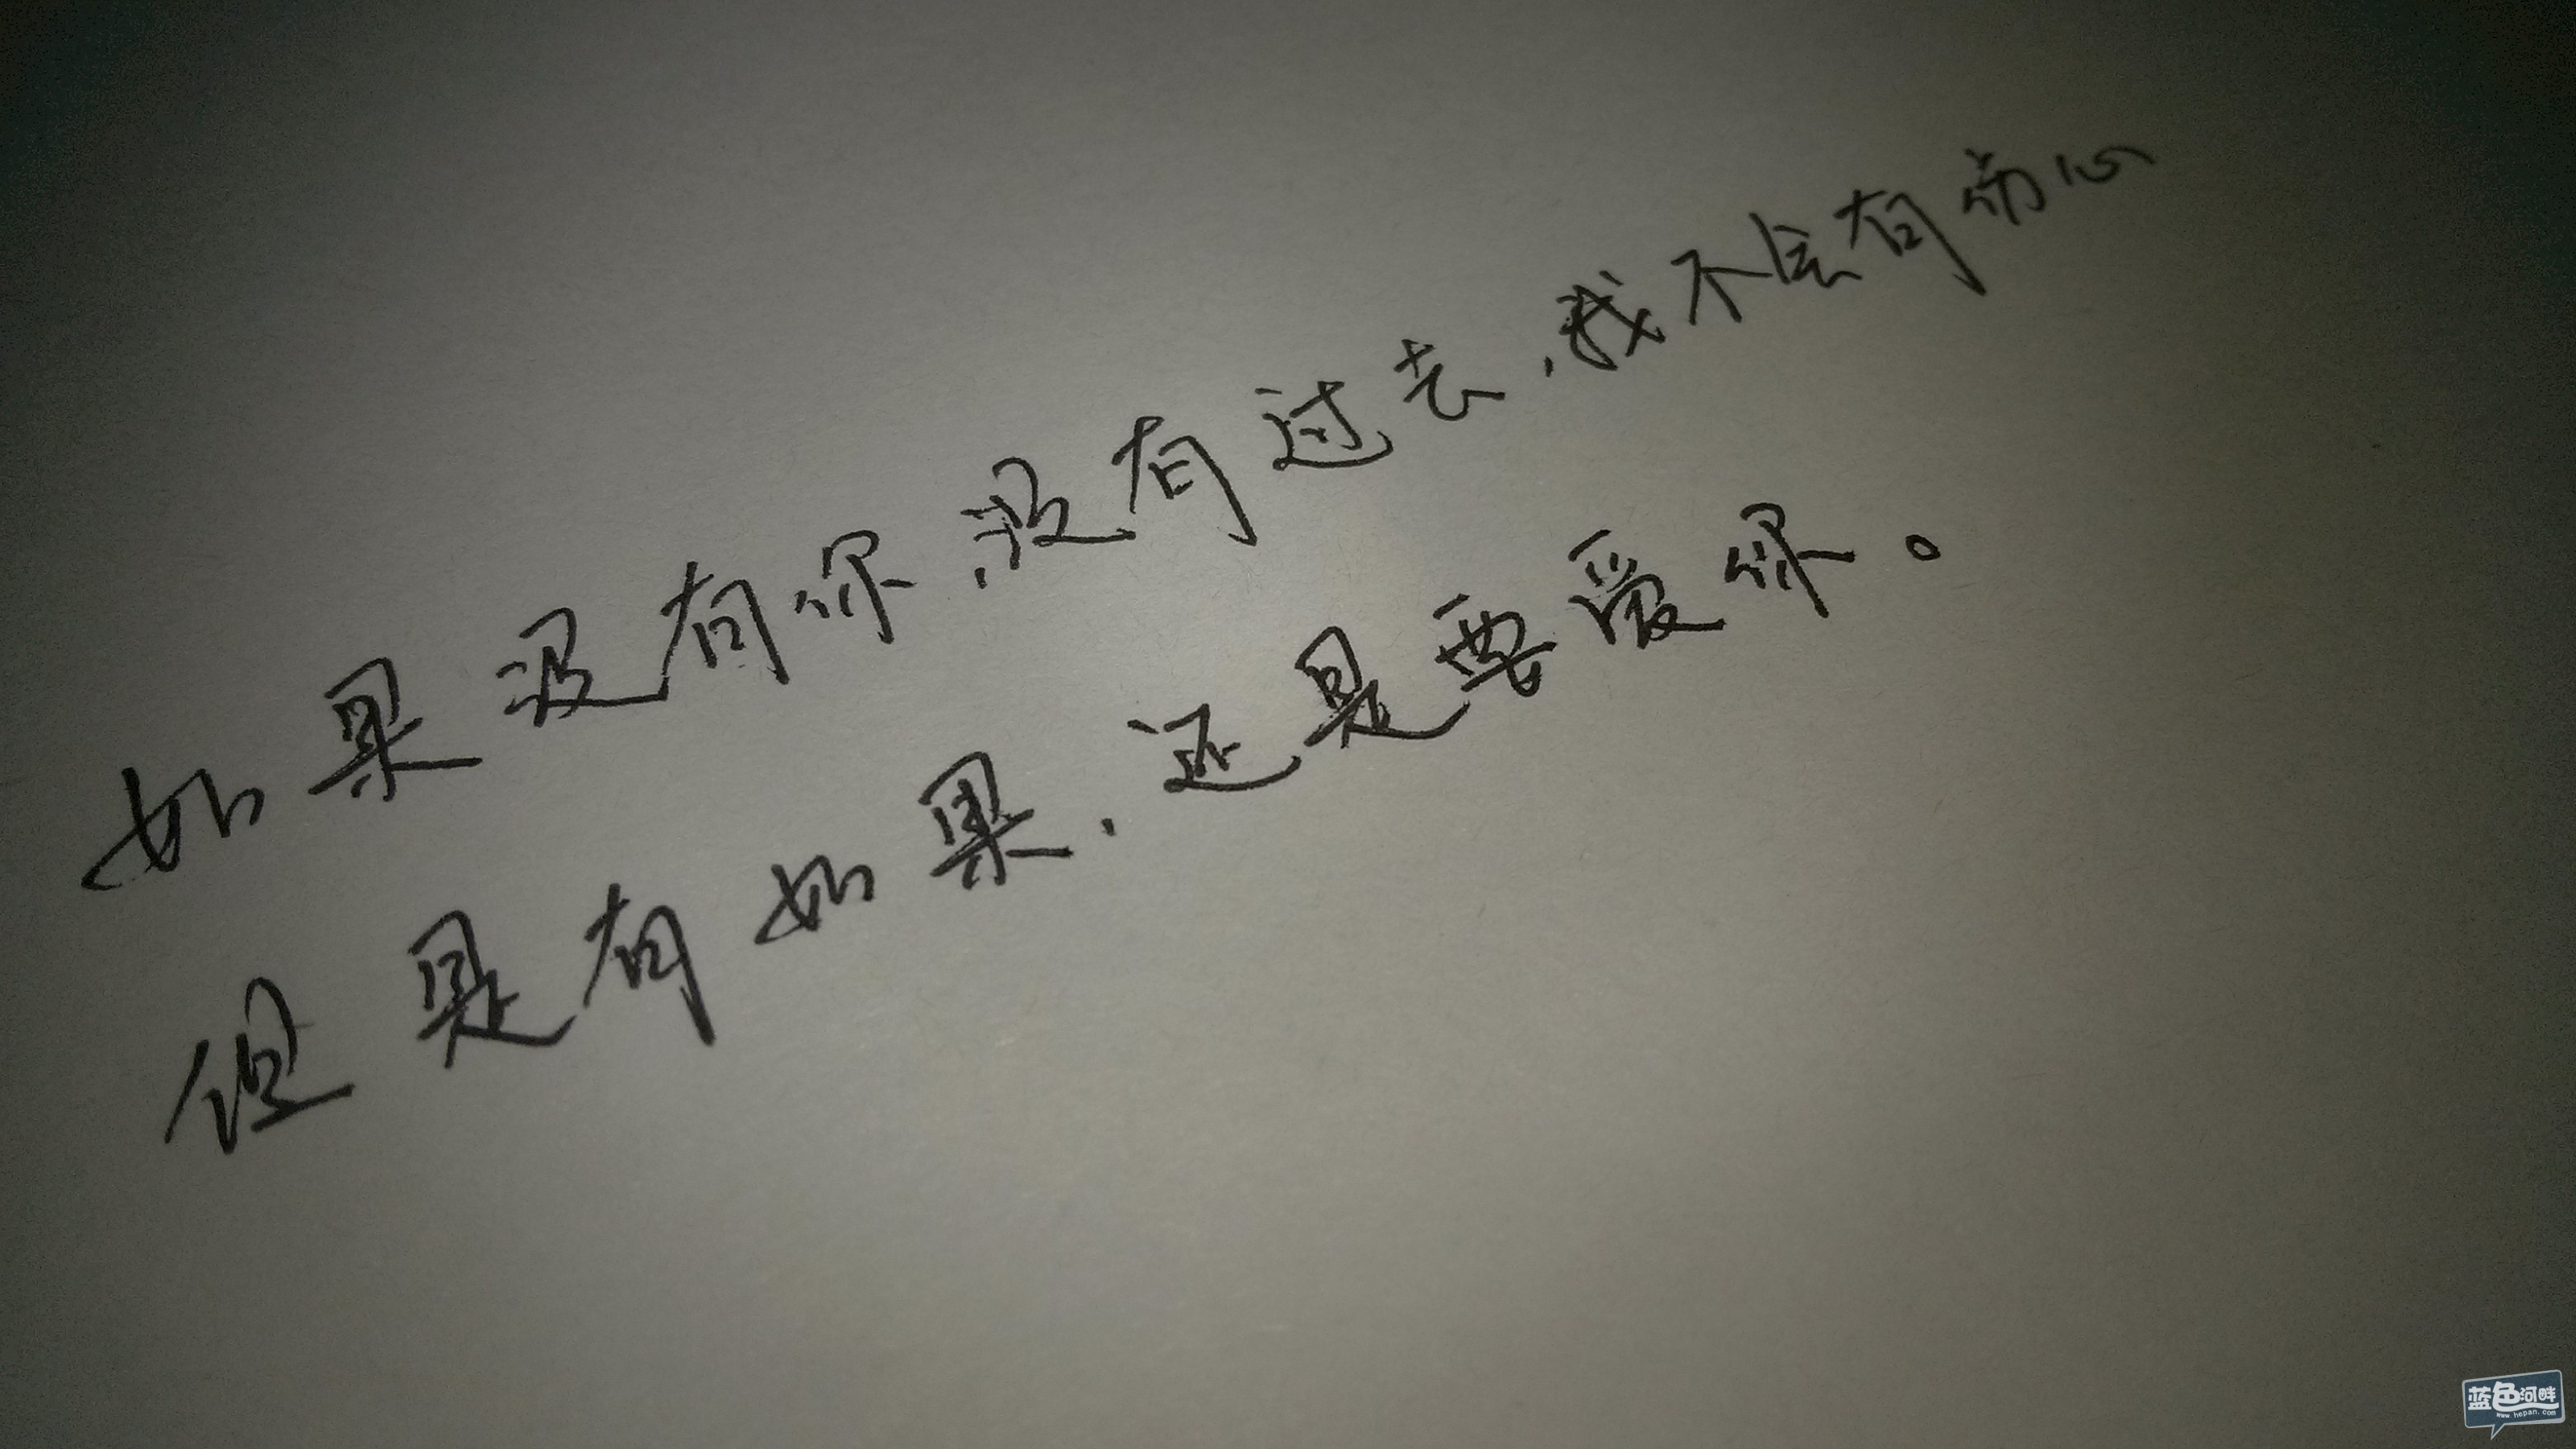 如果没有你,没有过去,我不会有伤心
但是有如果,还是要爱你。
蓝色河畔
www.hepan.com